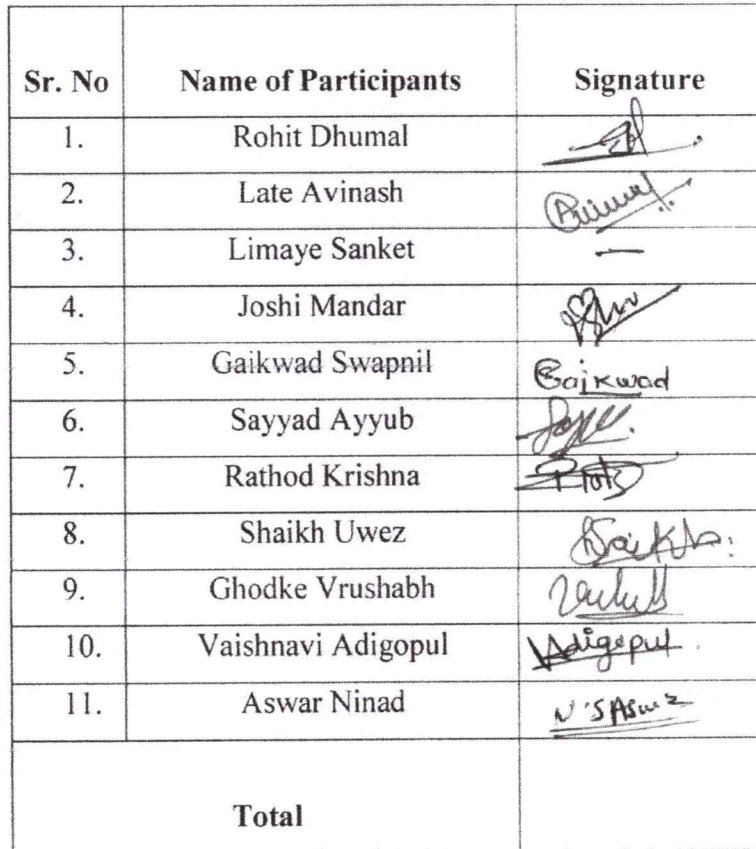 Sr. No Name of Participants Signature
1. Rohit Dhumal
2. Late Avinash
3. Limaye Sanket —
4. Joshi Mandar
5. Gaikwad Swapnil Gaikwad
6. Sayyad Ayyub
7. Rathod Krishna
8. Shaikh Uwez
9. Ghodke Vrushabh
10. Vaishnavi Adigopul VAdigopul
11. Aswar Ninad
Total